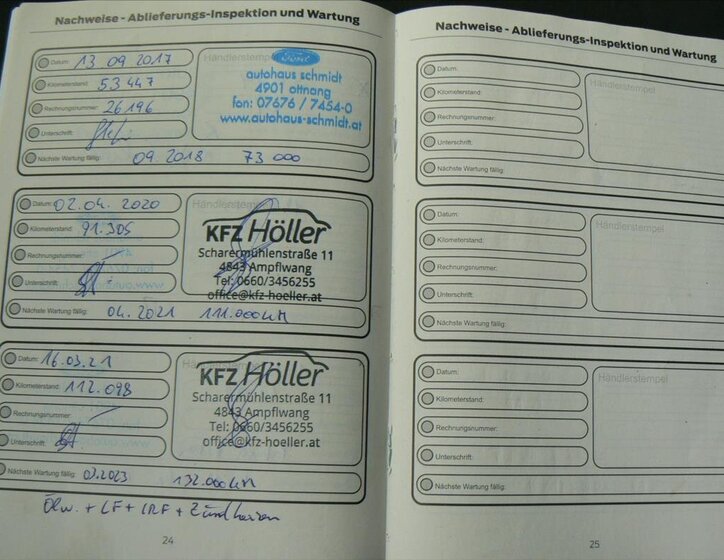 Nachweise - Ablieferungs-Inspektion und Wartung
Datum: 13 09 2017
Kilometerstand: 53 447
Rechnungsnummer: 26196
Unterschrift:
Nächste Wartung fällig: 09 2018 73 000
Händlerstempel
Ford
autohaus schmidt
4901 ottnang
fon: 07676 / 7454-0
www.autohaus-schmidt.at
Datum: 02.04.2020
Kilometerstand: 91.305
Rechnungsnummer:
Unterschrift:
Nächste Wartung fällig: 04.2021 111.000 KM
Händlerstempel
KFZ Höller
Scharermühlenstraße 11
4843 Ampflwang
Tel: 0660/3456255
office@kfz-hoeller.at
Datum: 16.03.21
Kilometerstand: 112.098
Rechnungsnummer:
Unterschrift:
Nächste Wartung fällig: 03.2023 132.000 KM
KFZ Höller
Scharermühlenstraße 11
4843 Ampflwang
Tel: 0660/3456255
office@kfz-hoeller.at
Ölw. + LF + IRF + Zündkerzen
24
Nachweise - Ablieferungs-Inspektion und Wartung
Datum:
Kilometerstand:
Rechnungsnummer:
Unterschrift:
Nächste Wartung fällig:
Händlerstempel
Datum:
Kilometerstand:
Rechnungsnummer:
Unterschrift:
Nächste Wartung fällig:
Händlerstempel
Datum:
Kilometerstand:
Rechnungsnummer:
Unterschrift:
Nächste Wartung fällig:
Händlerstempel
25